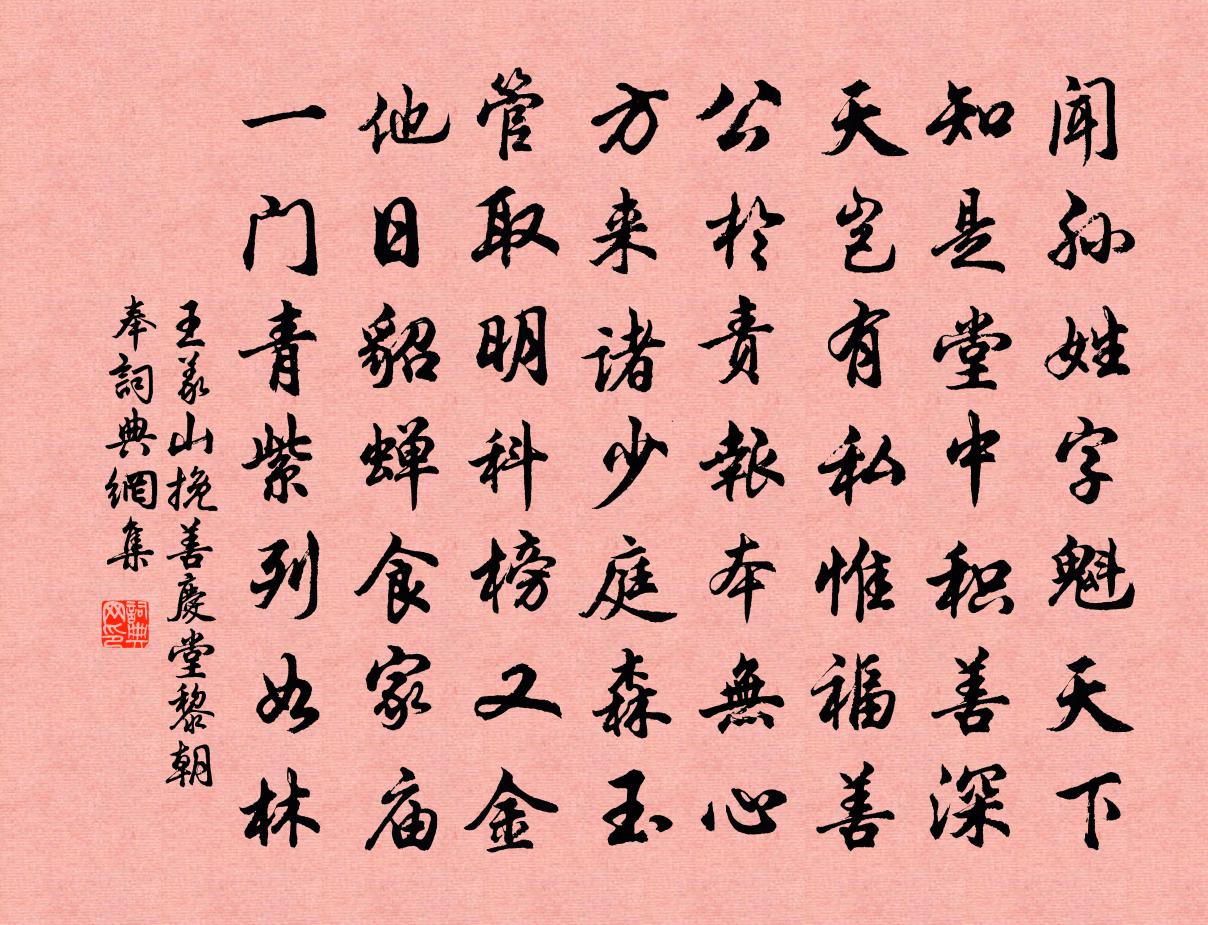 闻孙姓字魁天下
知是堂中积善深
天岂有私惟福善
公於责報本無心
方来诸少庭森玉
管取明科榜又金
他日貂蝉食家庙
一门青紫列如林
王义山挽善慶堂黎朝
奉詞典網集
詞典网印